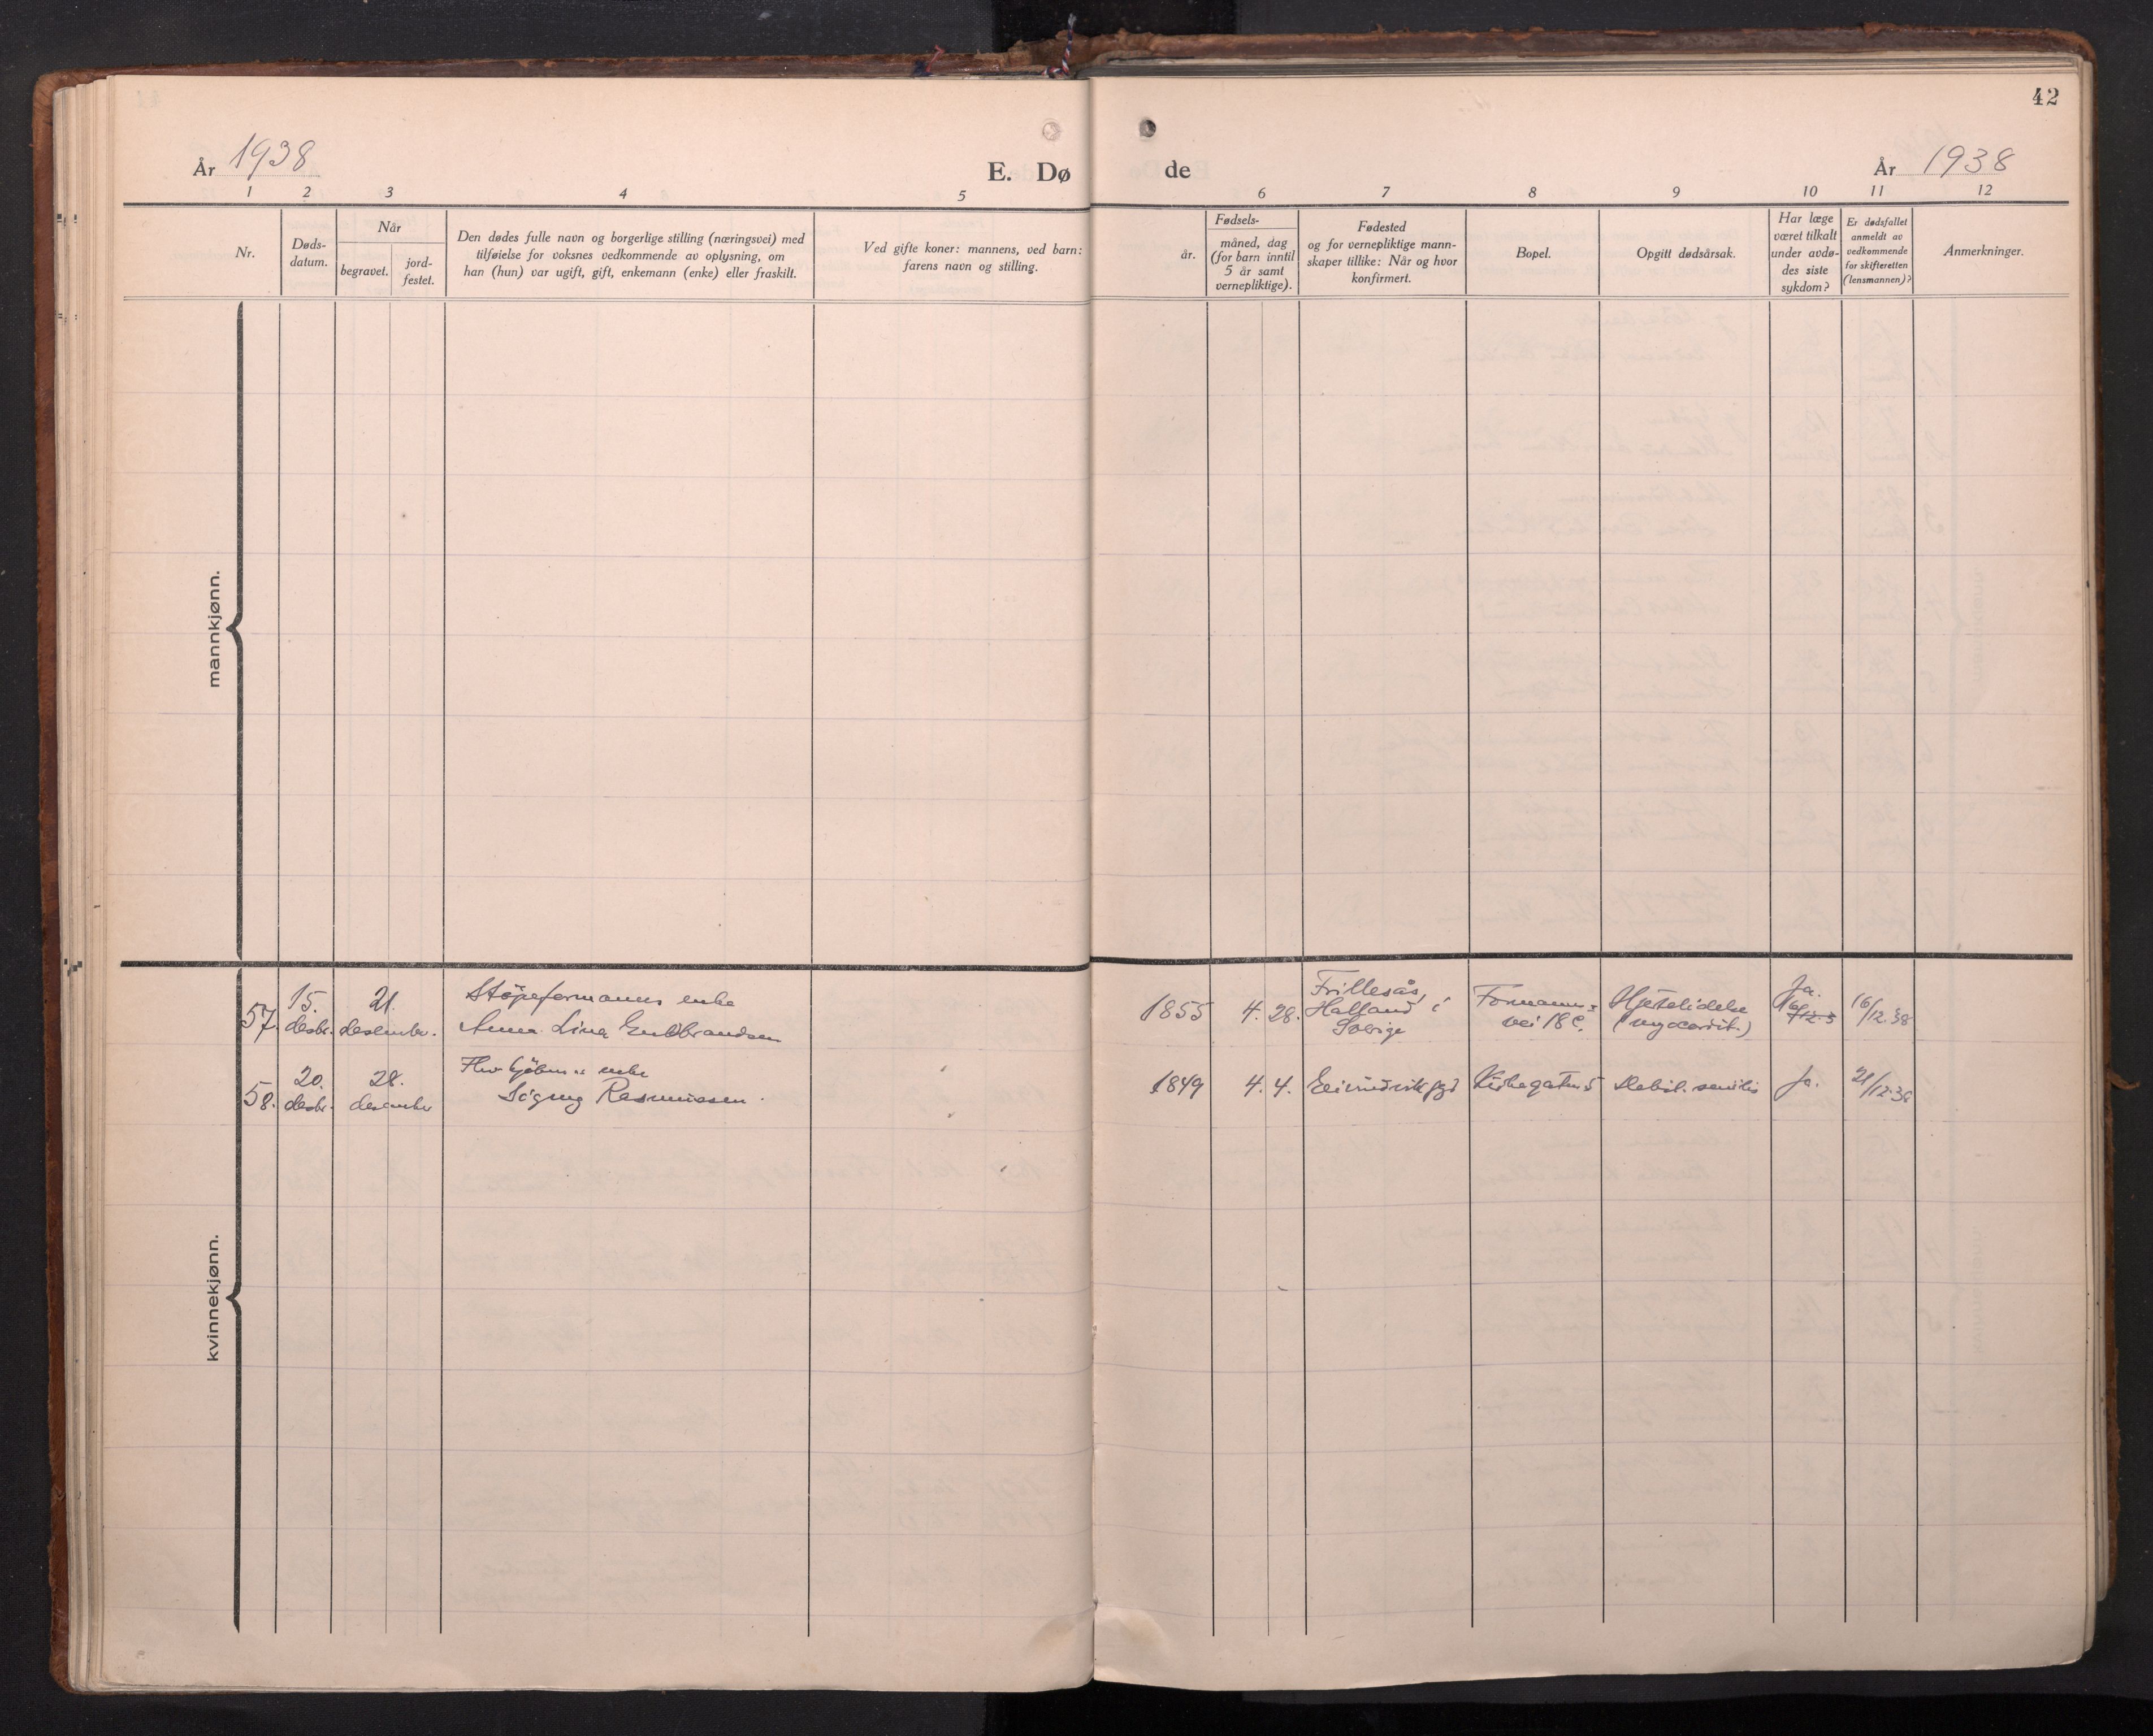 42
År 1938
E. Dø
de
År 1938
1 2 3 4 5 6 7 8 9 10 11 12
Nr.
Døds-
datum.
Når
begravet.
jord-
festet.
Den dødes fulle navn og borgerlige stilling (næringsvei) med
tilføielse for voksnes vedkommende av oplysning, om
han (hun) var ugift, gift, enkemann (enke) eller fraskilt.
Ved gifte koner: mannens, ved barn:
farens navn og stilling.
Fødsels-
år.
måned, dag
(for barn inntil
5 år samt
vernepliktige).
Fødested
og for vernepliktige mann-
skaper tillike: Når og hvor
konfirmert.
Bopel.
Opgitt dødsårsak.
Har læge
været tilkalt
under avdø-
des siste
sykdom?
Er dødsfallet
anmeldt av
vedkommende
for skifteretten
(lensmannen)?
Anmerkninger.
mannkjønn.
57.
15.
desbr.
21.
desember.
Støpeformanns enke
Anna Lina Guldbrandsen
1855
4. 28.
Frillesås,
Halland i
Sverige
Formanns
vei 18 e.
Hjertelidelse
(myocardit.)
Ja.
16/12.38
58.
20.
desbr.
28.
desember
enke
Rasmussen.
1849
4. 4.
Eivindvik pgd
Kirkegaten 5
Debil. senilis
Ja.
21/12.38
kvinnekjønn.